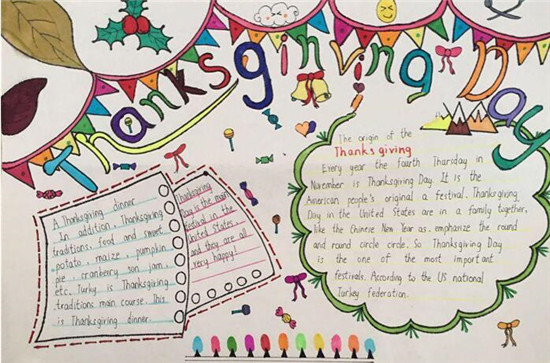 Thanksgiving Day
The origin of the
Thanksgiving
Every year the fourth Thursday in
November is Thanksgiving Day. It is the
American people's original a festival. Thanksgiving
Day in the United States are in a family together,
like the Chinese New Year as. emphasize the round
and round circle circle. So Thanksgiving Day
is the one of the most important
festivals. According to the US national
Turkey federation.
A Thanksgiving dinner
In addition, Thanksgiving
traditions, food and sweet
potato, maize, pumpkin
pie, cranberry son jam,
etc. Turky is Thanksgiving
traditions main course. This
is Thanksgiving dinner.
Thanksgiving
Day is the main
festival in the
United States
and they are all
very happy!